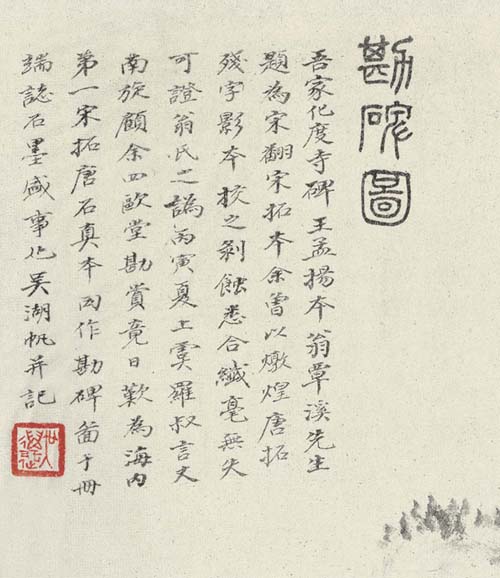 勘碑圖
吾家化度寺碑王孟揚本翁覃溪先生
題為宋翻宋拓本余曾以燉煌唐拓
殘字影本校之剝蝕悉合纖毫無失
可證翁氏之譌丙寅夏上虞羅叔言丈
南旋顧余四歐堂勘賞竟日歎為海內
第一宋拓唐石真本因作勘碑圖于冊
端誌石墨盛事也吳湖帆并記